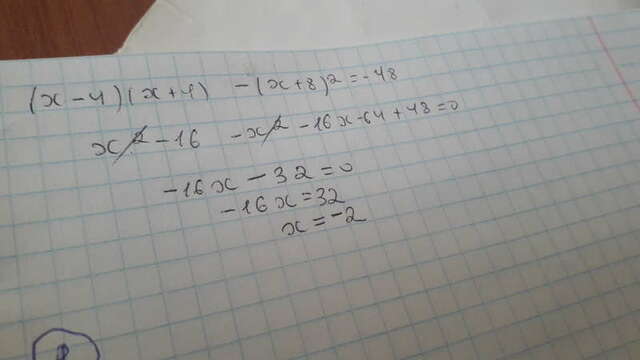 (x-4)(x+4) -(x+8)²=-48
x²-16 -x²-16x-64+48=0
-16x-32=0
-16x=32
x=-2